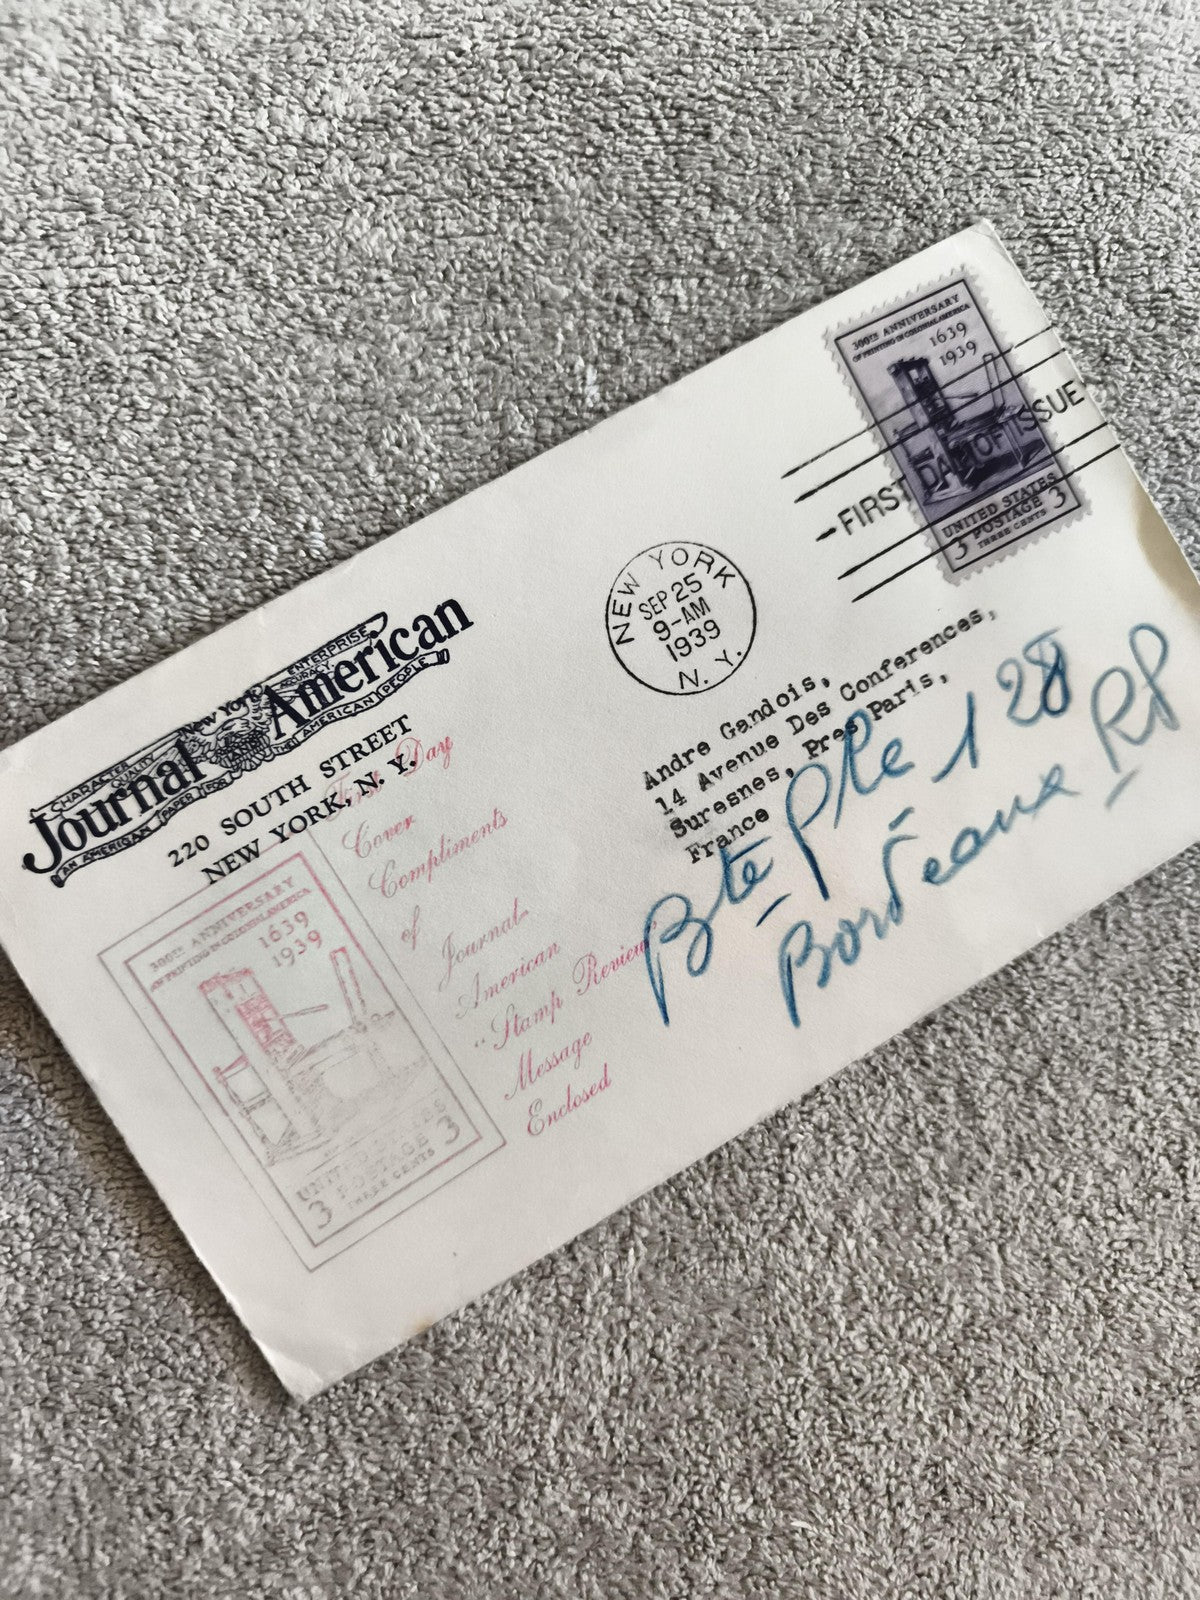 CHARACTER
QUALITY
ENTERPRISE
ACCURACY
Journal New York American
AN AMERICAN PAPER FOR THE AMERICAN PEOPLE
220 SOUTH STREET
NEW YORK, N. Y.
First Day
Cover
Compliments
of
Journal-
American
"Stamp Review"
Message
Enclosed
300TH ANNIVERSARY
OF PRINTING IN COLONIAL AMERICA
1639
1939
UNITED STATES
POSTAGE
3 THREE CENTS 3
NEW YORK
SEP 25
9-AM
1939
N. Y.
FIRST DAY OF ISSUE
300TH ANNIVERSARY
OF PRINTING IN COLONIAL AMERICA
1639
1939
UNITED STATES
POSTAGE
3 THREE CENTS 3
Andre Gandois,
14 Avenue Des Conferences,
Suresnes, Pres Paris,
France
Bte Ple 128
Bordeaux RP